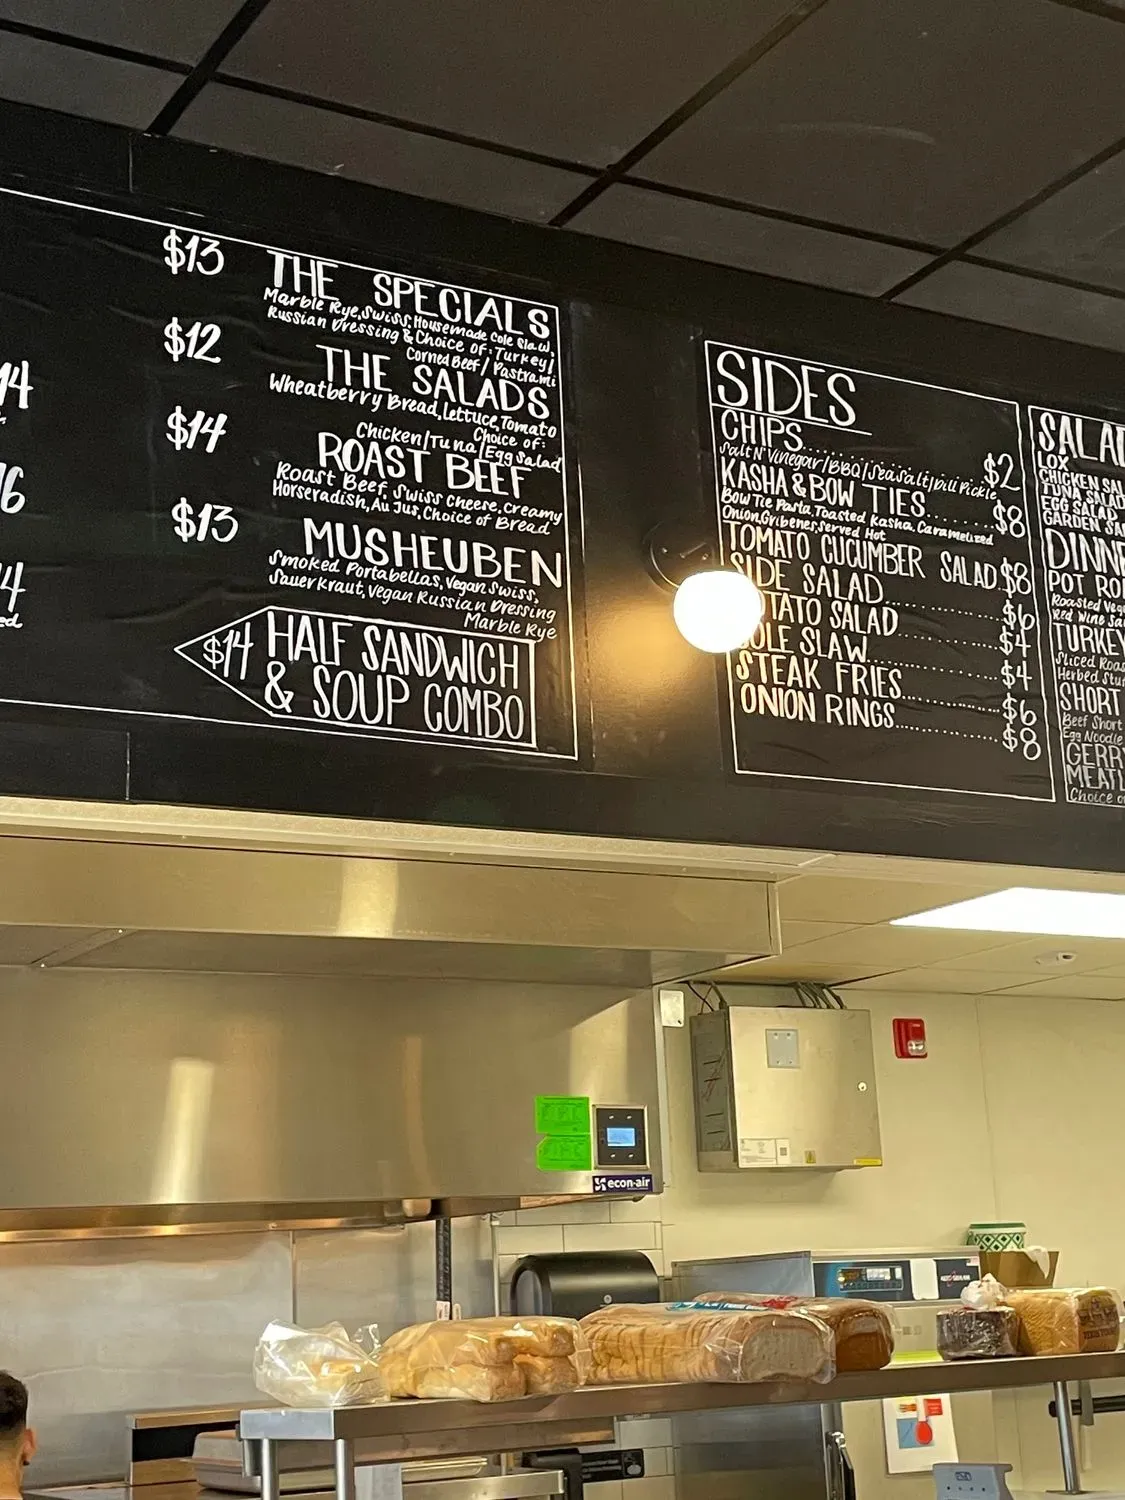 14
16
14
ed
$13 THE SPECIALS
Marble Rye, Swiss, Housemade Cole Slaw,
Russian Dressing & Choice of: Turkey/
Corned Beef / Pastrami
$12 THE SALADS
Wheatberry Bread, Lettuce, Tomato
Choice of:
Chicken/Tuna/Egg Salad
$14 ROAST BEEF
Roast Beef, Swiss Cheese, Creamy
Horseradish, Au Jus, Choice of Bread
$13 MUSHEUBEN
Smoked Portabellas, Vegan Swiss,
Sauerkraut, Vegan Russian Dressing
Marble Rye
$14 HALF SANDWICH
& SOUP COMBO
SIDES
CHIPS.................... $2
Salt N' Vinegar/BBQ/Sea Salt/Dill Pickle
KASHA & BOW TIES........ $8
Bow Tie Pasta, Toasted Kasha, Caramelized
Onion, Gribenes, Served Hot
TOMATO CUCUMBER SALAD $8
SIDE SALAD............... $6
TATO SALAD............ $4
OLE SLAW.............. $4
STEAK FRIES.............. $6
ONION RINGS............. $8
SALAD
LOX
CHICKEN SAL
TUNA SALAD
EGG SALAD
GARDEN SA
DINNE
POT RO
Roasted Veg
Red Wine Sa
TURKEY
Sliced Roas
Herbed Stu
SHORT
Beef Short
Egg Noodle
GERRY
MEATL
Choice o
econ-air